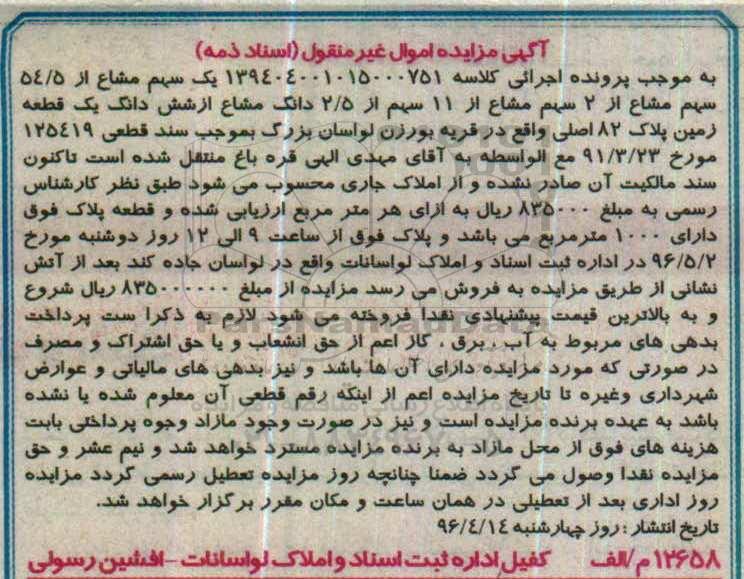 آگهی مزایده اموال غیر منقول (اسناد ذمه)
به موجب پرونده اجرائی کلاسه ۱۳۹۴۰۴۰۰۱۰۱۵۰۰۰۷۵۱ یک سهم مشاع از ۵۴/۵
سهم مشاع از ۲ سهم مشاع از ۱۱ سهم از ۲/۵ دانگ مشاع ازشش دانگ یک قطعه
زمین پلاک ۸۲ اصلی واقع در قریه بورزن لواسان بزرگ بموجب سند قطعی ۱۲۵۴۱۹
مورخ ۹۱/۳/۲۳ مع الواسطه به آقای مهدی الهی قره باغ منتقل شده است تاکنون
سند مالکیت آن صادر نشده و از املاک جاری محسوب می شود طبق نظر کارشناس
رسمی به مبلغ ۸۳۵۰۰۰ ریال به ازای هر متر مربع ارزیابی شده و قطعه پلاک فوق
دارای ۱۰۰۰ مترمربع می باشد و پلاک فوق از ساعت ۹ الی ۱۲ روز دوشنبه مورخ
۹۶/۵/۲ در اداره ثبت اسناد و املاک لواسانات واقع در لواسان جاده کند بعد از آتش
نشانی از طریق مزایده به فروش می رسد مزایده از مبلغ ۸۳۵۰۰۰۰۰۰ ریال شروع
و به بالاترین قیمت پیشنهادی نقدا فروخته می شود لازم به ذکرا ست پرداخت
بدهی های مربوط به آب ، برق ، گاز اعم از حق انشعاب و یا حق اشتراک و مصرف
در صورتی که مورد مزایده دارای آن ها باشد و نیز بدهی های مالیاتی و عوارض
شهرداری وغیره تا تاریخ مزایده اعم از اینکه رقم قطعی آن معلوم شده یا نشده
باشد به عهده برنده مزایده است و نیز در صورت وجود مازاد وجوه پرداختی بابت
هزینه های فوق از محل مازاد به برنده مزایده مسترد خواهد شد و نیم عشر و حق
مزایده نقدا وصول می گردد ضمنا چنانچه روز مزایده تعطیل رسمی گردد مزایده
روز اداری بعد از تعطیلی در همان ساعت و مکان مقرر برگزار خواهد شد.
تاریخ انتشار : روز چهارشنبه ۹۶/۴/۱۴
۱۲۶۵۸ م/الف کفیل اداره ثبت اسناد و املاک لواسانات – افشین رسولی
ParsNamadData